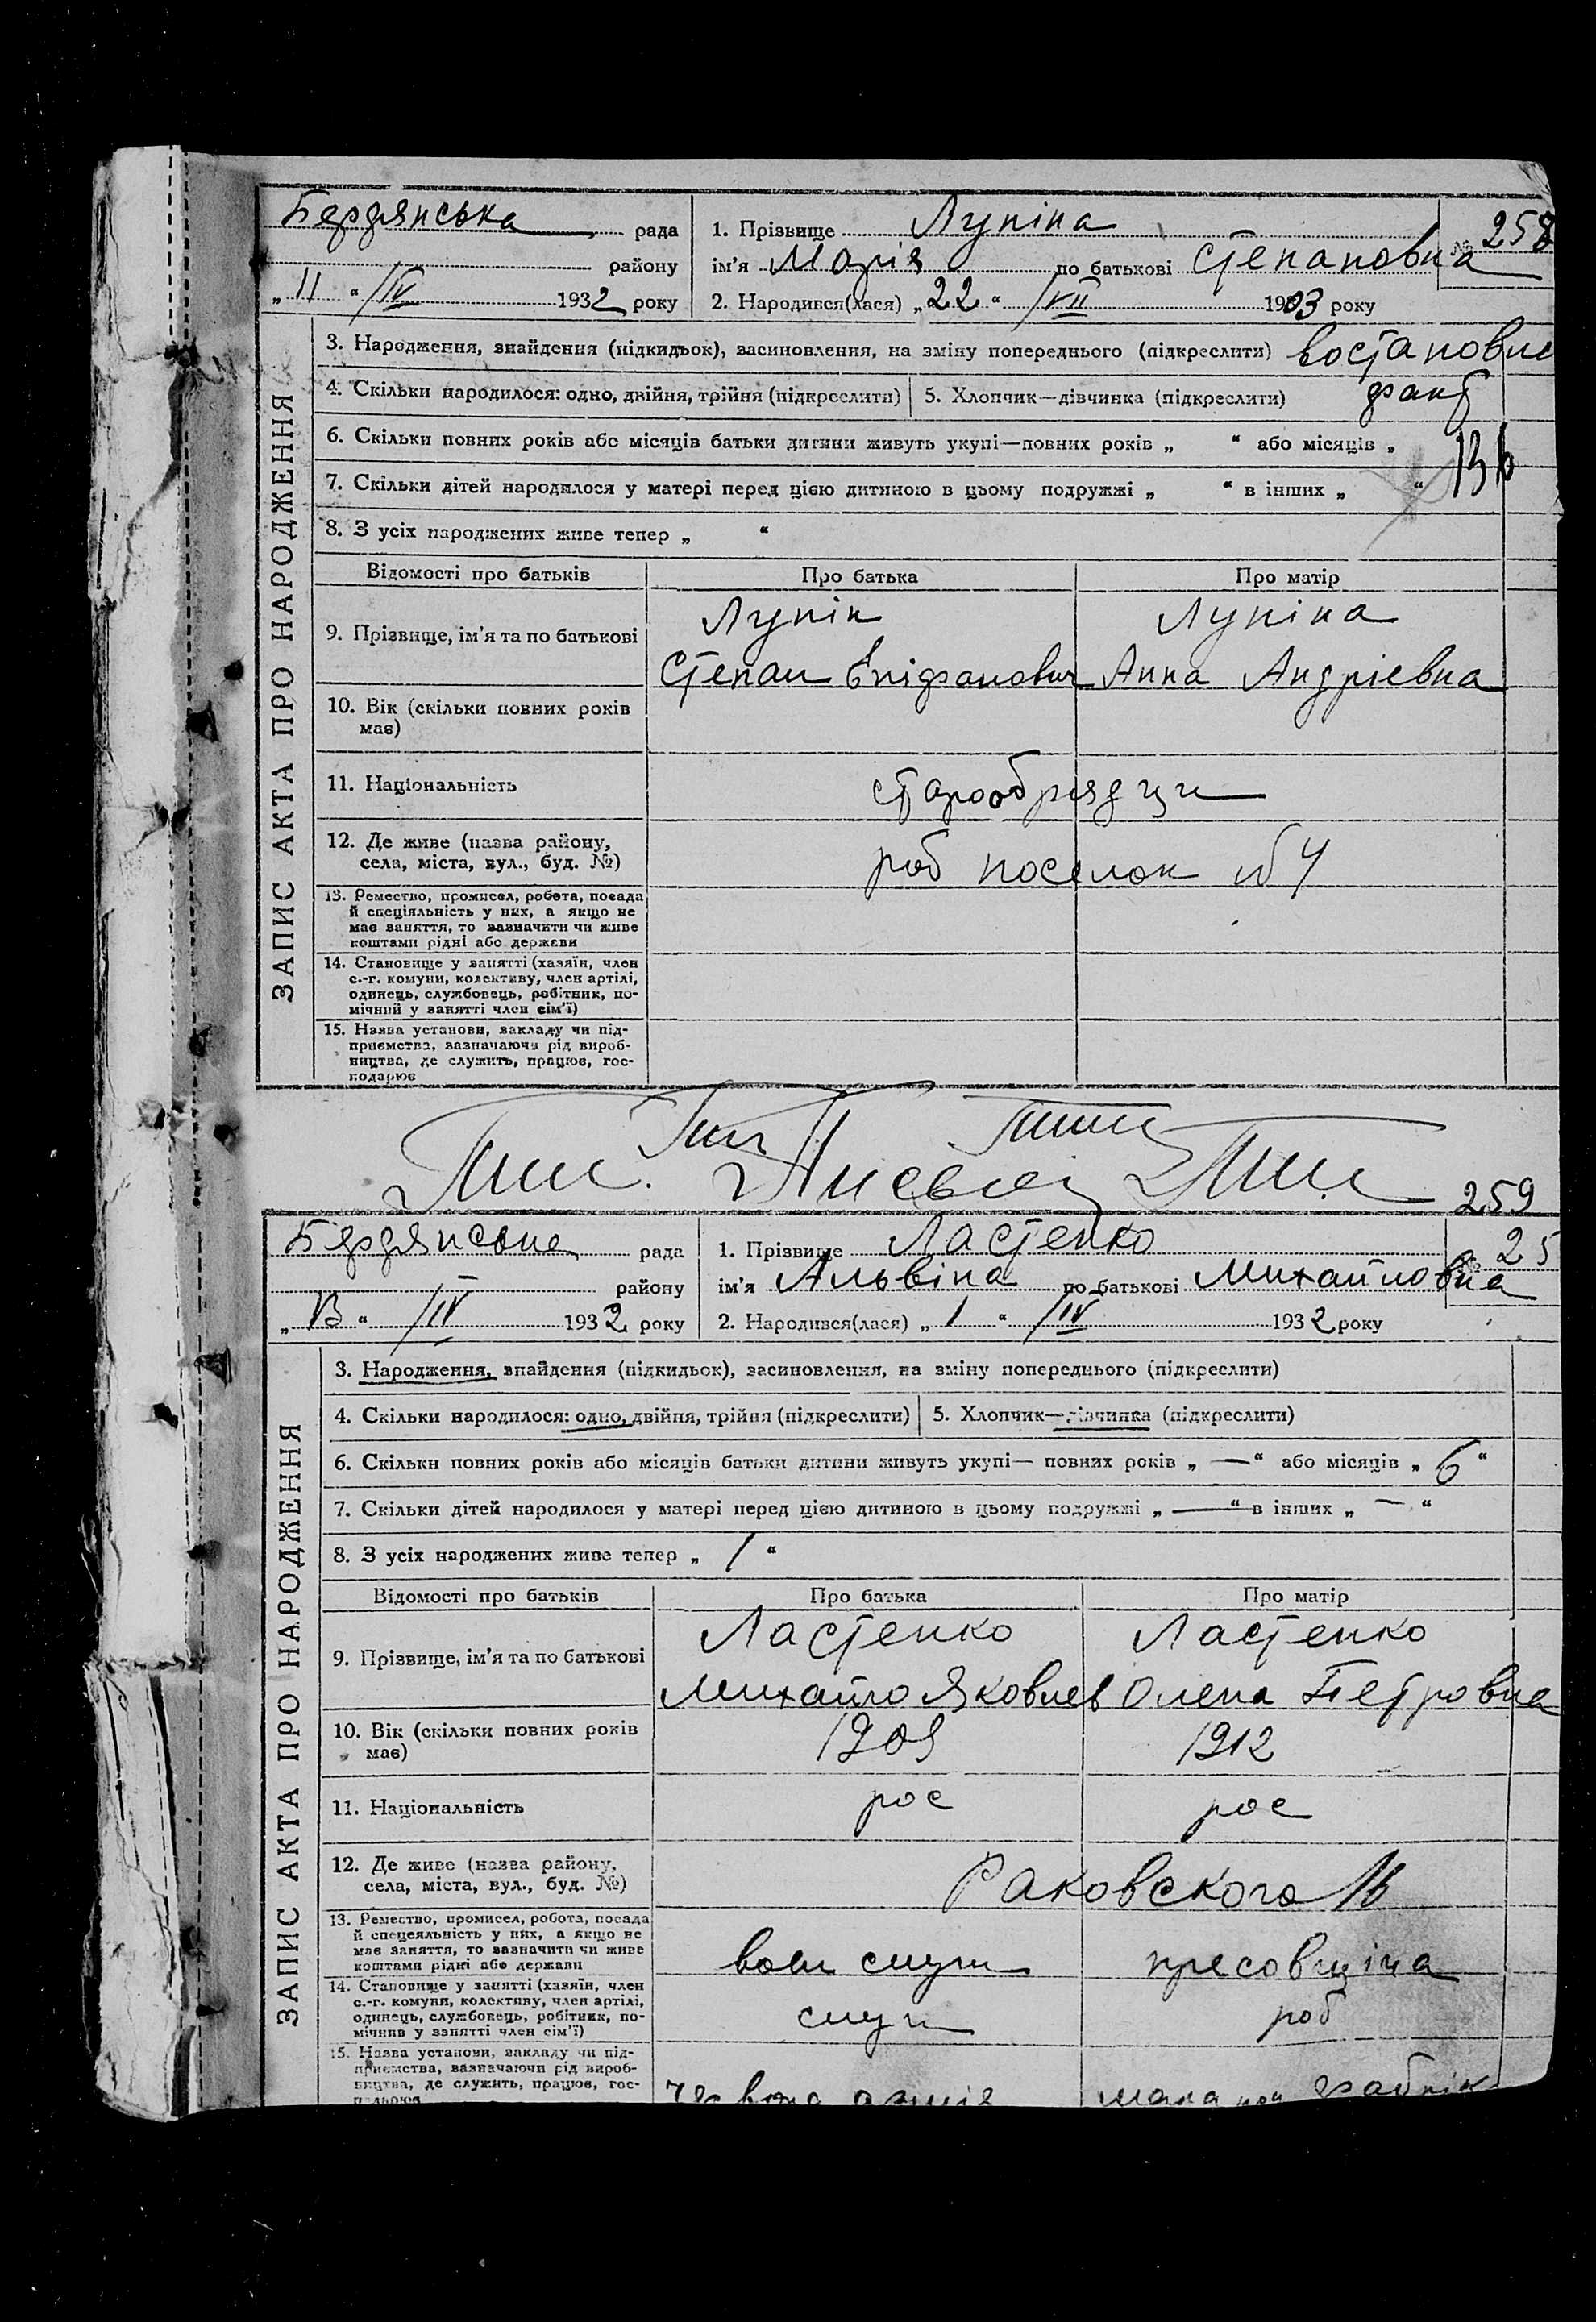 Бердянська рада
1. Прізвище Лупіна
№ 258
району
ім'я Марія по батькові Степановна
„11“ /IV 1932 року
2. Народився(лася) „22“ /VII 1903 року
ЗАПИС АКТА ПРО НАРОДЖЕННЯ
3. Народження, знайдення (підкидьок), засиновлення, на зміну попереднього (підкреслити) востановле
4. Скільки народилося: одно, двійня, трійня (підкреслити) 5. Хлопчик—дівчинка (підкреслити) факт
6. Скільки повних років або місяців батьки дитини живуть укупі—повних років „ “ або місяців „
7. Скільки дітей народилося у матері перед цією дитиною в цьому подружжі „ “ в інших „ “
8. З усіх народжених живе тепер „ “
Відомості про батьків Про батька Про матір
9. Прізвище, ім'я та по батькові
Лупін Лупіна
Степан Епіфанович Анна Андріевна
10. Вік (скільки повних років
має)
11. Національність старообрядци
12. Де живе (назва району,
села, міста, вул., буд. №)
роб поселок №4
13. Ремество, промисел, робота, посада
й спеціяльність у них, а якщо не
має заняття, то зазначити чи живе
коштами рідні або держави
14. Становище у занятті (хазяїн, член
с.-г. комуни, колективу, член артілі,
одинець, службовець, робітник, по-
мічний у занятті член сім'ї)
15. Назва установи, закладу чи під-
приємства, зазначаючи рід вироб-
ництва, де служить, працює, гос-
подарює
259
Бердянська рада
1. Прізвище Ластенко
№ 25
району
ім'я Альвіна по батькові Михайловна
„13“ /IV 1932 року
2. Народився(лася) „1“ /IV 1932 року
ЗАПИС АКТА ПРО НАРОДЖЕННЯ
3. Народження, знайдення (підкидьок), засиновлення, на зміну попереднього (підкреслити)
4. Скільки народилося: одно, двійня, трійня (підкреслити) 5. Хлопчик—дівчинка (підкреслити)
6. Скільки повних років або місяців батьки дитини живуть укупі— повних років „ — “ або місяців „ 6 “
7. Скільки дітей народилося у матері перед цією дитиною в цьому подружжі „ — “ в інших „ — “
8. З усіх народжених живе тепер „ 1 “
Відомості про батьків Про батька Про матір
9. Прізвище, ім'я та по батькові
Ластенко Ластенко
Михайло Яковлев Олена Петровна
10. Вік (скільки повних років
має)
1909 1912
11. Національність рос рос
12. Де живе (назва району,
села, міста, вул., буд. №)
Раковского 16
13. Ремество, промисел, робота, посада
й спецеяльність у них, а якщо не
має заняття, то зазначити чи живе
коштами рідні або держави
служ пресовщіча
14. Становище у занятті (хазяїн, член
с.-г. комуни, колективу, член артілі,
одинець, службовець, робітник, по-
мічний у занятті член сім'ї)
служ роб
15. Назва установи, закладу чи під-
приємства, зазначаючи рід вироб-
ництва, де служить, працює, гос-
Червона армія